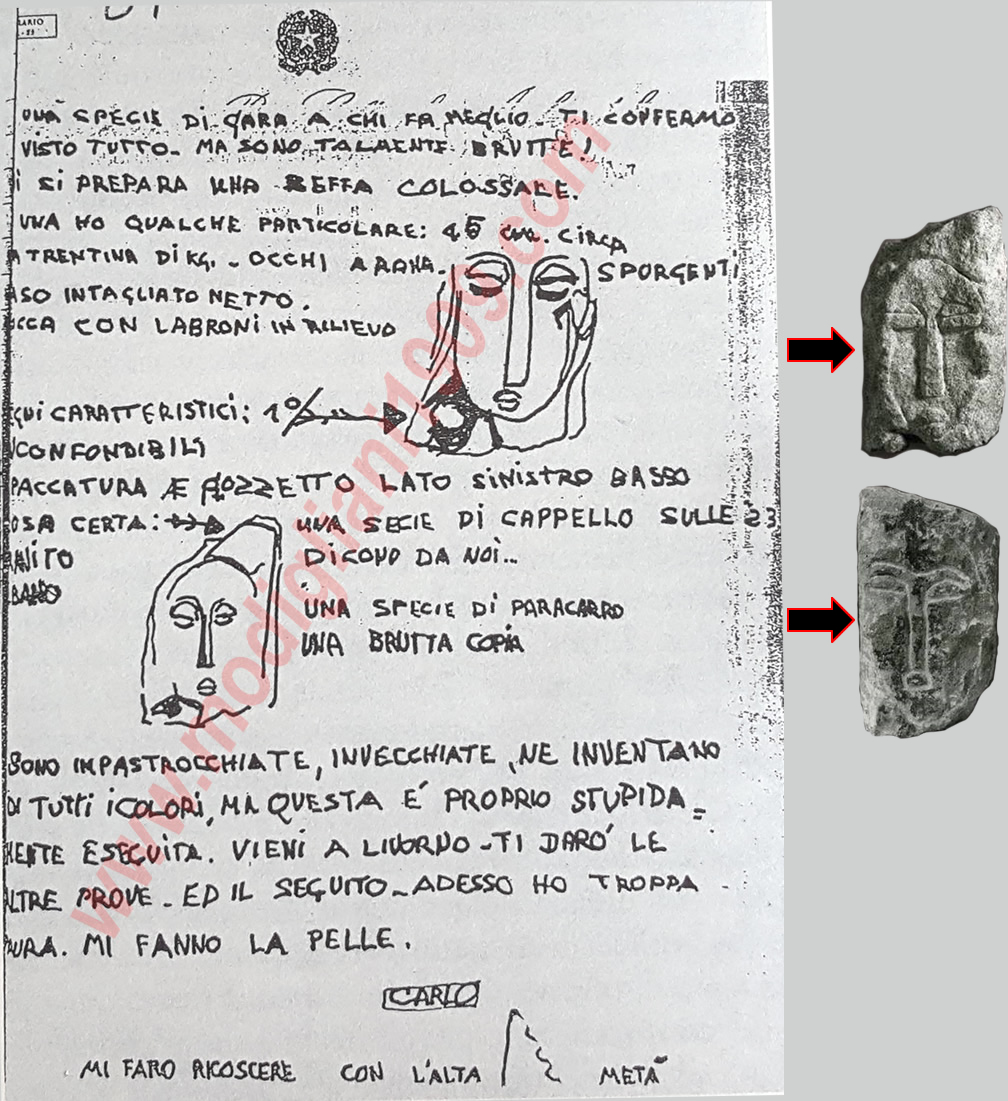 RARIO
UNA SPECIE DI GARA A CHI FA MEGLIO. TI CONFERMO
VISTO TUTTO. MA SONO TALMENTE BRUTTE!
I SI PREPARA UNA BEFFA COLOSSALE.
UNA HO QUALCHE PARTICOLARE: 45 CM. CIRCA
A TRENTINA DI KG. - OCCHI A ROMB. SPORGENTI
ASO INTAGLIATO NETTO.
OCCA CON LABRONI IN RILIEVO
CARATTERISTICI: 1°
NCONFONDIBILI
PACCATURA E POZZETTO LATO SINISTRO BASSO
OSA CERTA: UNA SECIE DI CAPPELLO SULLE 23
DICONO DA NOI...
UNA SPECIE DI PARACARRO
UNA BRUTTA COPIA
SONO IMPASTROCCHIATE, INVECCHIATE, NE INVENTANO
DI TUTTI I COLORI, MA QUESTA E' PROPRIO STUPIDA=
MENTE ESEGUITA. VIENI A LIVORNO - TI DARO' LE
LTRE PROVE - ED IL SEGUITO - ADESSO HO TROPPA
AURA. MI FANNO LA PELLE.
CARLO
MI FARO RICOSCERE CON L'ALTA METÀ
www.modigliani1909.com